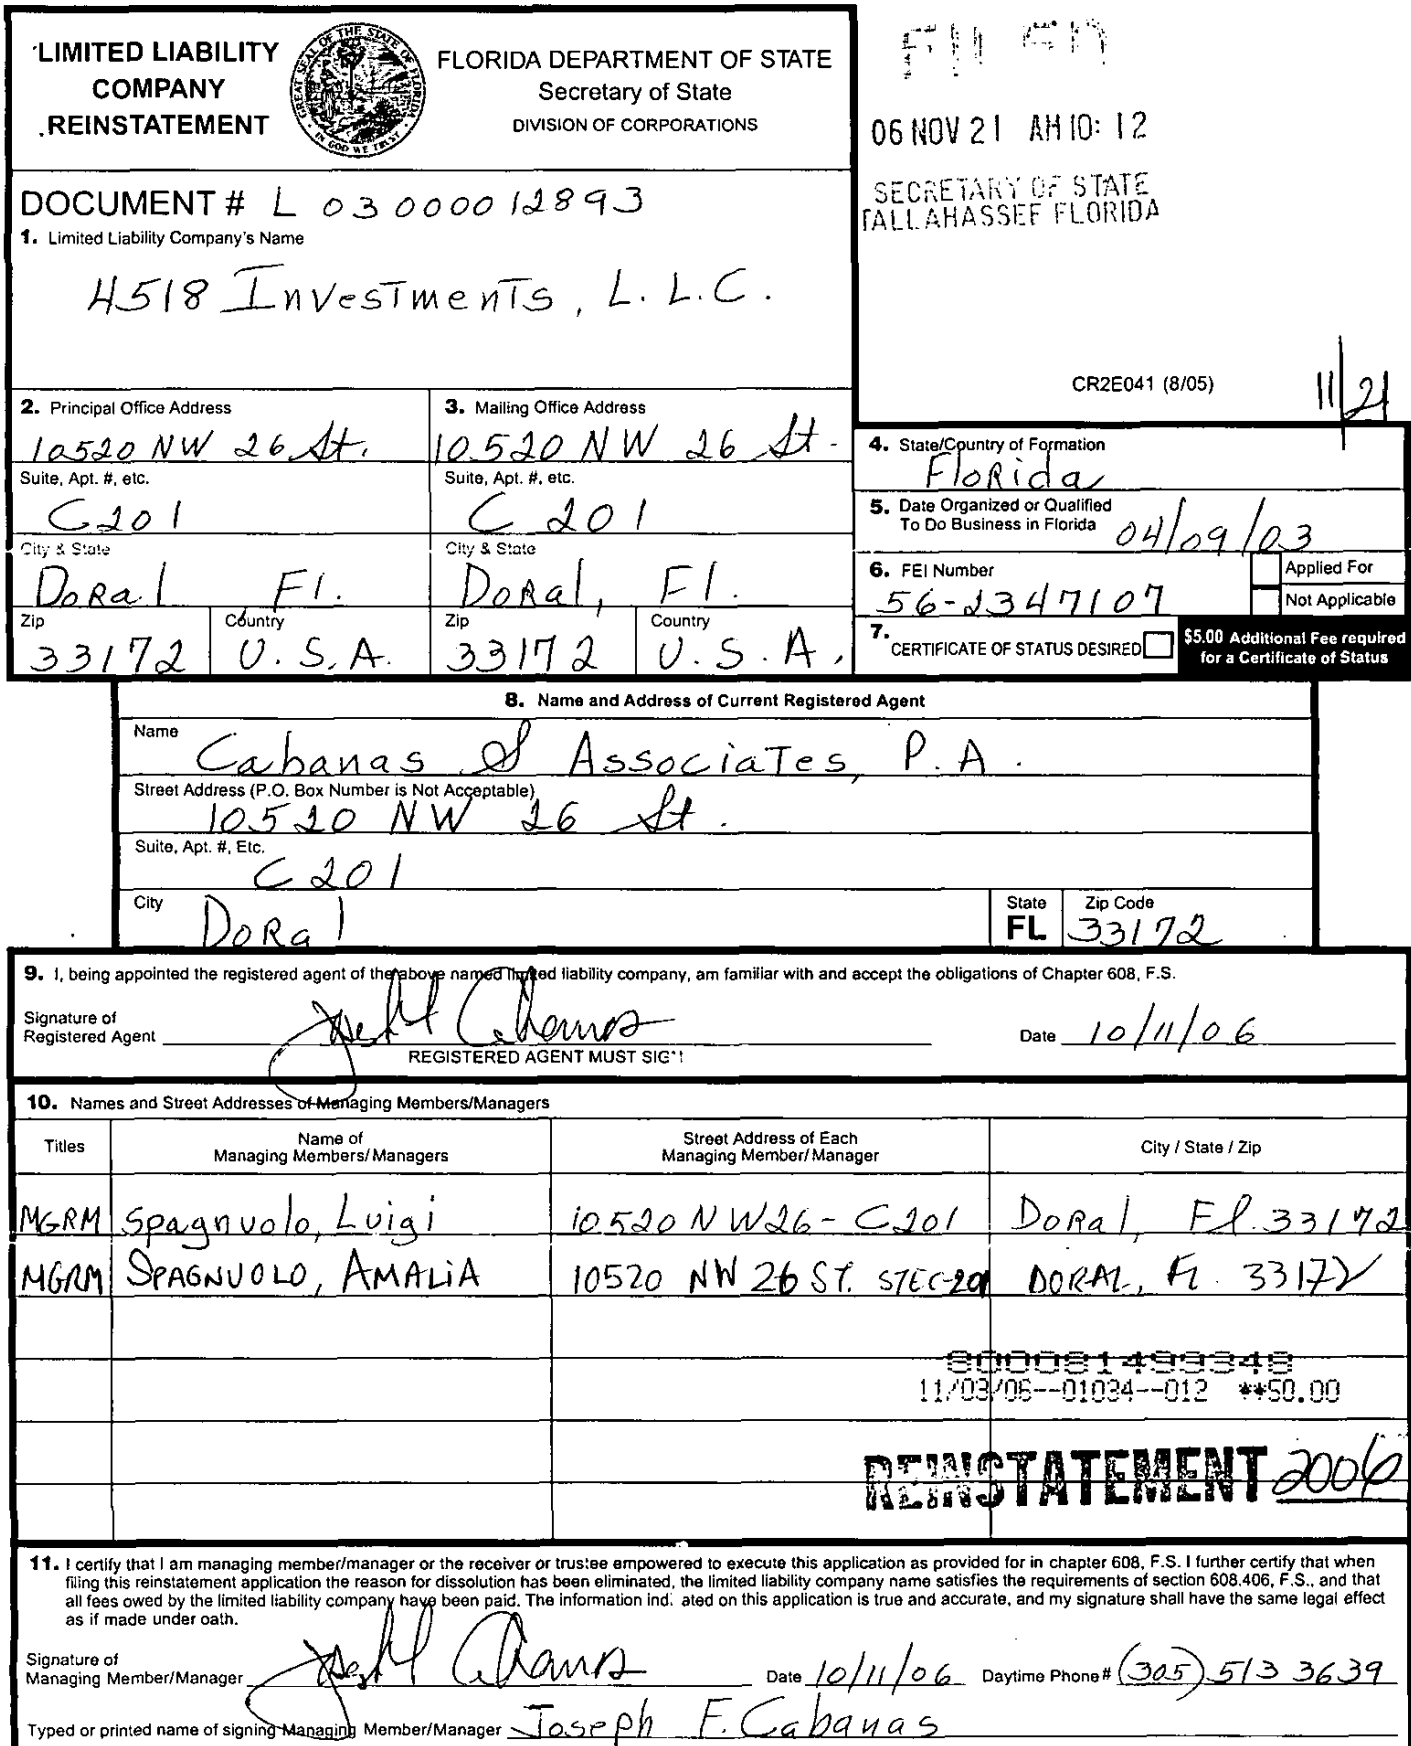 LIMITED LIABILITY
COMPANY
REINSTATEMENT
GREAT SEAL OF THE STATE OF FLORIDA
IN GOD WE TRUST
FLORIDA DEPARTMENT OF STATE
Secretary of State
DIVISION OF CORPORATIONS
06 NOV 21 AM 10: 12
SECRETARY OF STATE
TALLAHASSEE FLORIDA
DOCUMENT # L 03000012893
1. Limited Liability Company's Name
4518 Investments, L.L.C.
CR2E041 (8/05)
11/21
2. Principal Office Address
10520 NW 26 St.
Suite, Apt. #, etc.
C201
City & State
Doral Fl.
Zip
33172
Country
U.S.A.
3. Mailing Office Address
10520 NW 26 St.
Suite, Apt. #, etc.
C 201
City & State
Doral, Fl.
Zip
33172
Country
U.S.A.
4. State/Country of Formation
Florida
5. Date Organized or Qualified
To Do Business in Florida 04/09/03
6. FEI Number
56-2347107
Applied For
Not Applicable
7. CERTIFICATE OF STATUS DESIRED
$5.00 Additional Fee required
for a Certificate of Status
8. Name and Address of Current Registered Agent
Name
Cabanas & Associates, P.A.
Street Address (P.O. Box Number is Not Acceptable)
10520 NW 26 St.
Suite, Apt. #, Etc.
C 201
City
Doral
State
FL
Zip Code
33172
9. I, being appointed the registered agent of the above named limited liability company, am familiar with and accept the obligations of Chapter 608, F.S.
Signature of
Registered Agent
REGISTERED AGENT MUST SIGN
Date 10/11/06
10. Names and Street Addresses of Managing Members/Managers
Titles
Name of
Managing Members/Managers
Street Address of Each
Managing Member/Manager
City / State / Zip
MGRM Spagnuolo, Luigi 10520 NW26 - C201 Doral, Fl. 33172
MGRM SPAGNUOLO, AMALIA 10520 NW 26 ST. STE C-201 DORAL, FL. 33172
800081499348
11/03/06--01034--012 **50.00
REINSTATEMENT 2006
11. I certify that I am managing member/manager or the receiver or trustee empowered to execute this application as provided for in chapter 608, F.S. I further certify that when
filing this reinstatement application the reason for dissolution has been eliminated, the limited liability company name satisfies the requirements of section 608.406, F.S., and that
all fees owed by the limited liability company have been paid. The information ind ated on this application is true and accurate, and my signature shall have the same legal effect
as if made under oath.
Signature of
Managing Member/Manager
Date 10/11/06 Daytime Phone # (305) 513 3639
Typed or printed name of signing Managing Member/Manager Joseph F. Cabanas